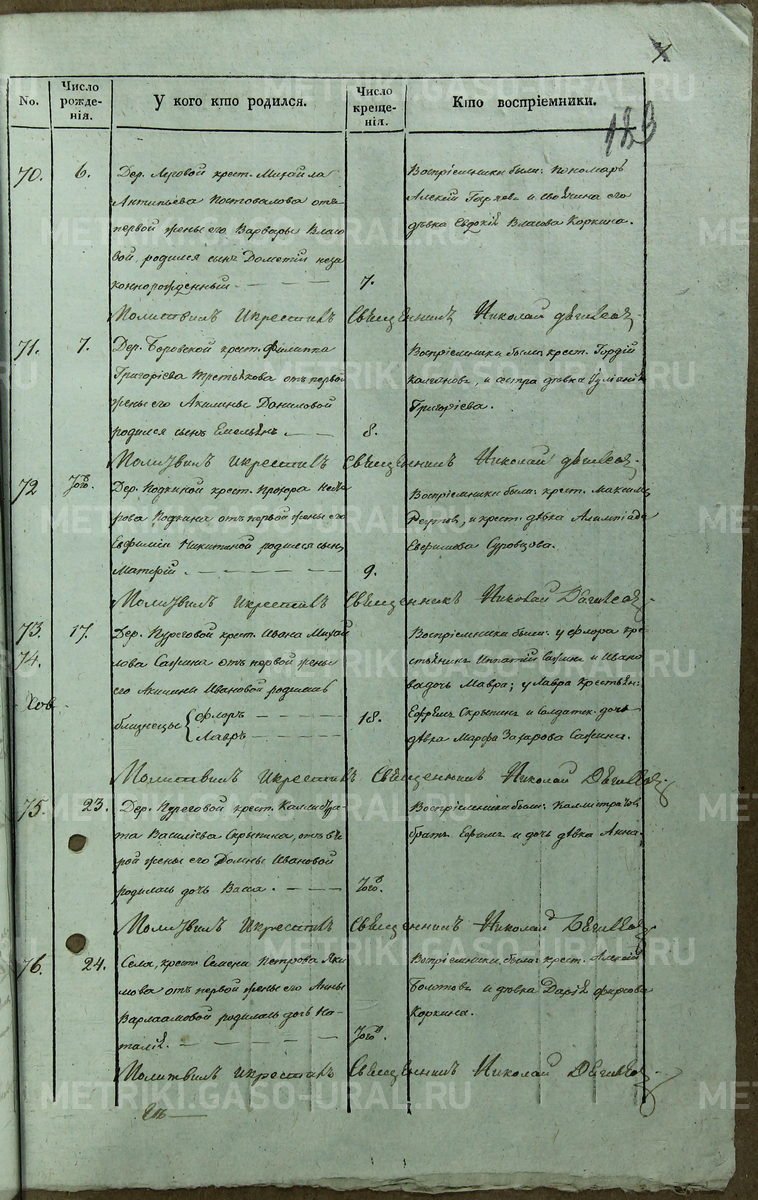 183
No. Число рожденія. У кого кто родился. Число крещенія. Кто воспріемники.
70. 6. Дер. Луговой крест. Михайла
Антипьева Постовалова отъ
первой жены его Варвары Власо
вой, родился сынъ Дометій неза
коннорожденный 7.
Воспріемники были: пономарь
Алексѣй и своячина его
дѣвка Евдокія Власова Коркина.
Молитвилъ и крестилъ Священникъ Николай
71. 7. Дер. Боровской крест. Филиппа
Григоріева Третьякова отъ первой
жены его Акилины Даниловой
родился сынъ Емельянъ 8.
Воспріемники были крест. Гордій
и сестра дѣвка
Григоріева.
Молитвилъ и крестилъ Священникъ Николай
72 того. Дер. крест. Прохора
отъ первой жены его
Евфиміи Никитиной родился сынъ
Матфій 9.
Воспріемники были: крест. Максимъ
и крест. дѣвка Алимпіада
Евфимова Суровцова.
Молитвилъ и крестилъ Священникъ Николай
73. 17. Дер. крест. Ивана Михай
74. лова Сажина отъ первой жены
его Акилины Ивановой родились
близнецы Флоръ
Лавръ 18.
Воспріемники были: у Флора кре
стьянинъ Ипатій Сажинъ и Ивано
ва дочь Мавра; у Лавра крестьян:
Ефремъ Скрыпинъ и солдатск. дочь
дѣвка Марѳа Захарова Сажина.
Молитвилъ и крестилъ Священникъ Николай
75. 23. Дер. крест. Каллистра
та Василіева Скрыпина, отъ вто
рой жены его Домны Ивановой
родилась дочь Васса. того.
Воспріемники были: Каллистратовъ
братъ Ефремъ и дочь дѣвка Анна.
Молитвилъ и крестилъ Священникъ Николай
76. 24. Села, крест. Семена Петрова Яки
мова отъ первой жены его Анны
Варлаамовой родилась дочь На
талія. того.
Воспріемники были: крест. Алексѣй
Болотовъ и дѣвка Дарія Фирсова
Коркина.
Молитвилъ и крестилъ Священникъ Николай
METRIKI.GASO-URAL.RU